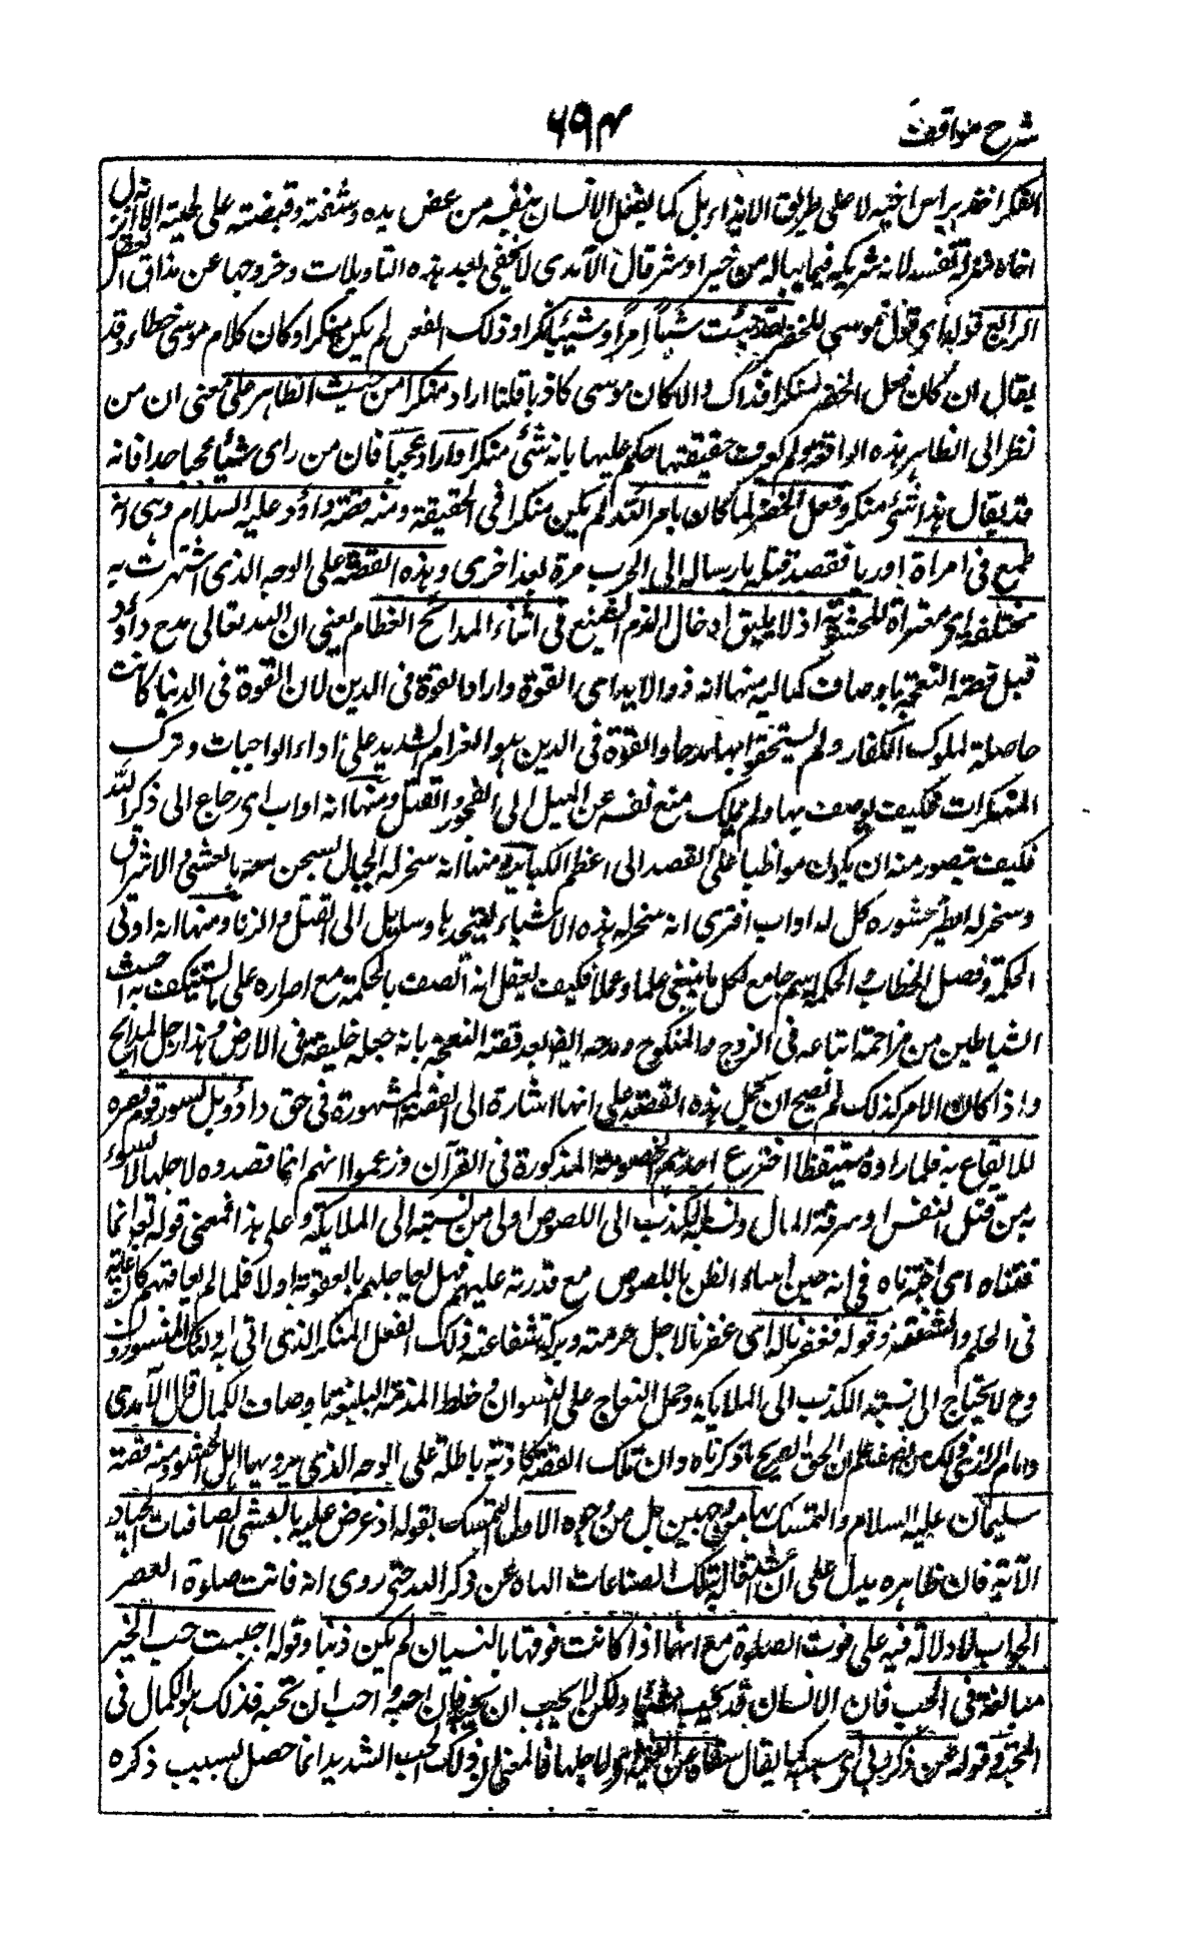 شرح مواقف
۶۹۴
الفكر اخذ براس اخيه لا على طريق الايذاء بل كما يفعل الانسان بنفسه من عض يده وشفته وقبضته على لحيته الا انه نزل
اخاه منزلة نفسه لانه شريكه فيما يناله من خير او شر قال الآمدى لا يخفى بعد هذه التاويلات وخروجها عن مذاق العقل
الرابع قوله اى قول موسى للخضر لقد جئت شيئاً امراً وشيئا نكرا وذلك الفعل لم يكن منكرا وكان كلام موسى خطاء وقد
يقال ان كان فعل الخضر منكرا فذاك والا كان موسى كاذبا قلنا اراد منكرا من حيث الظاهر على معنى ان من
نظر الى الظاهر هذه الواقعة ولم يعرف حقيقتها حكم عليها بانه شئ منكر او اراد عجبا فان من راى شيئا عجبا جدا فانه
قد يقال هذا شئ منكر وفعل الخضر لما كان بامر الله لم يكن منكرا فى الحقيقة ومنه قصة داؤد عليه السلام وهى انه
طمع فى امراة اوريا فقصد قتله بارساله الى الحرب مرة بعد اخرى وهذه القصة على الوجه الذى اشتهرت به
مختلقة اى مفتراة للحشوية اذ لا يليق ادخال الذم الشنيع فى اثناء المدائح العظام يعنى ان الله تعالى مدح داؤد
قبل قصة النعجة باوصاف كمالية منها انه ذو الايد اى القوة واراد القوة فى الدين لان القوة فى الدنيا كانت
حاصلة لملوك الكفار ولم يستحقوا بها مدحا والقوة فى الدين هو العزم الشديد على اداء الواجبات وترك
المنكرات فكيف يوصف بها ولم يملك منع نفسه عن الميل الى الفجور والقتل ومنها انه اواب اى رجاع الى ذكر الله
فكيف يتصور منه ان يكون مواظبا على القصد الى اعظم الكبائر ومنها انه سخر له الجبال يسبحن معه بالعشى والاشراق
وسخر له الطير محشورة كل له اواب افترى انه سخر له هذه الاشياء ليتخذها وسايل الى القتل والزنا ومنها انه اوتى
الحكمة وفصل الخطاب والحكمة اسم جامع لكل ما ينبغى علما وعملا فكيف يعقل انه اتصف بالحكمة مع اصراره على ما يستنكف به اخبث
الشياطين من مزاحمة اتباعه فى الزوج والمنكوح ومدحه ايضا بعد قصة النعجة بانه جعله خليفة فى الارض وهذا من اجل المدائح
واذا كان الامر كذلك لم يصح ان يحمل هذه القصة على انها اشارة الى القصة المشهورة فى حق داؤد بل تسور قوم قصره
للايقاع به فلما راوه مستيقظا اخترع احدهم الخصومة المذكورة فى القرآن وزعموا انهم انما قصدوه لاجلها لا لسوء
به من قتل النفس او سرقة المال ونسبة الكذب الى اللصوص اولى من نسبته الى الملايكة وعلى هذا فمعنى قوله تعالى انما
فتناه اى اختبرناه فى انه حين اساء الظن باللصوص مع قدرته عليهم هل يعاجلهم بالعقوبة او لا فلما لم يعاقبهم كان غاية
فى الحلم والشفقة وقوله فغفرنا له اى غفرنا لاجل حرمته وبركة شفاعته ذلك الفعل المنكر الذى اتى به اولئك المتسورون
وح لا يحتاج الى نسبة الكذب الى الملايكة وحمل النعاج على النسوان وخلط المذمة البليغة باوصاف الكمال قال الآمدى
وان تلك القصة كاذبة باطلة على الوجه الذى يرويها اهل الحشو ومنه قصة
سليمان عليه السلام والتمسك بها من وجوه الاول التمسك بقوله اذ عرض عليه بالعشى الصافنات الجياد
الآية فان ظاهره يدل على ان اشتغاله بتلك الصافنات الهاه عن ذكر الله حتى روى انه فاتت صلوة العصر
الجواب لا دلالة فيه على فوت الصلوة مع انها اذا كانت فوتها بالنسيان لم يكن ذنبا وقوله احببت حب الخير
مبالغة فى الحب فان الانسان قد يحب شيئا ولكن لا يحب ان يحبه فان احبه واحب ان يحبه فذلك هو الكمال فى
المحبة وقوله عن ذكر ربى اى بسببه كما يقال سقاه عن العيمة اى لاجلها فالمعنى ان ذلك الحب الشديد انما حصل بسبب ذكره